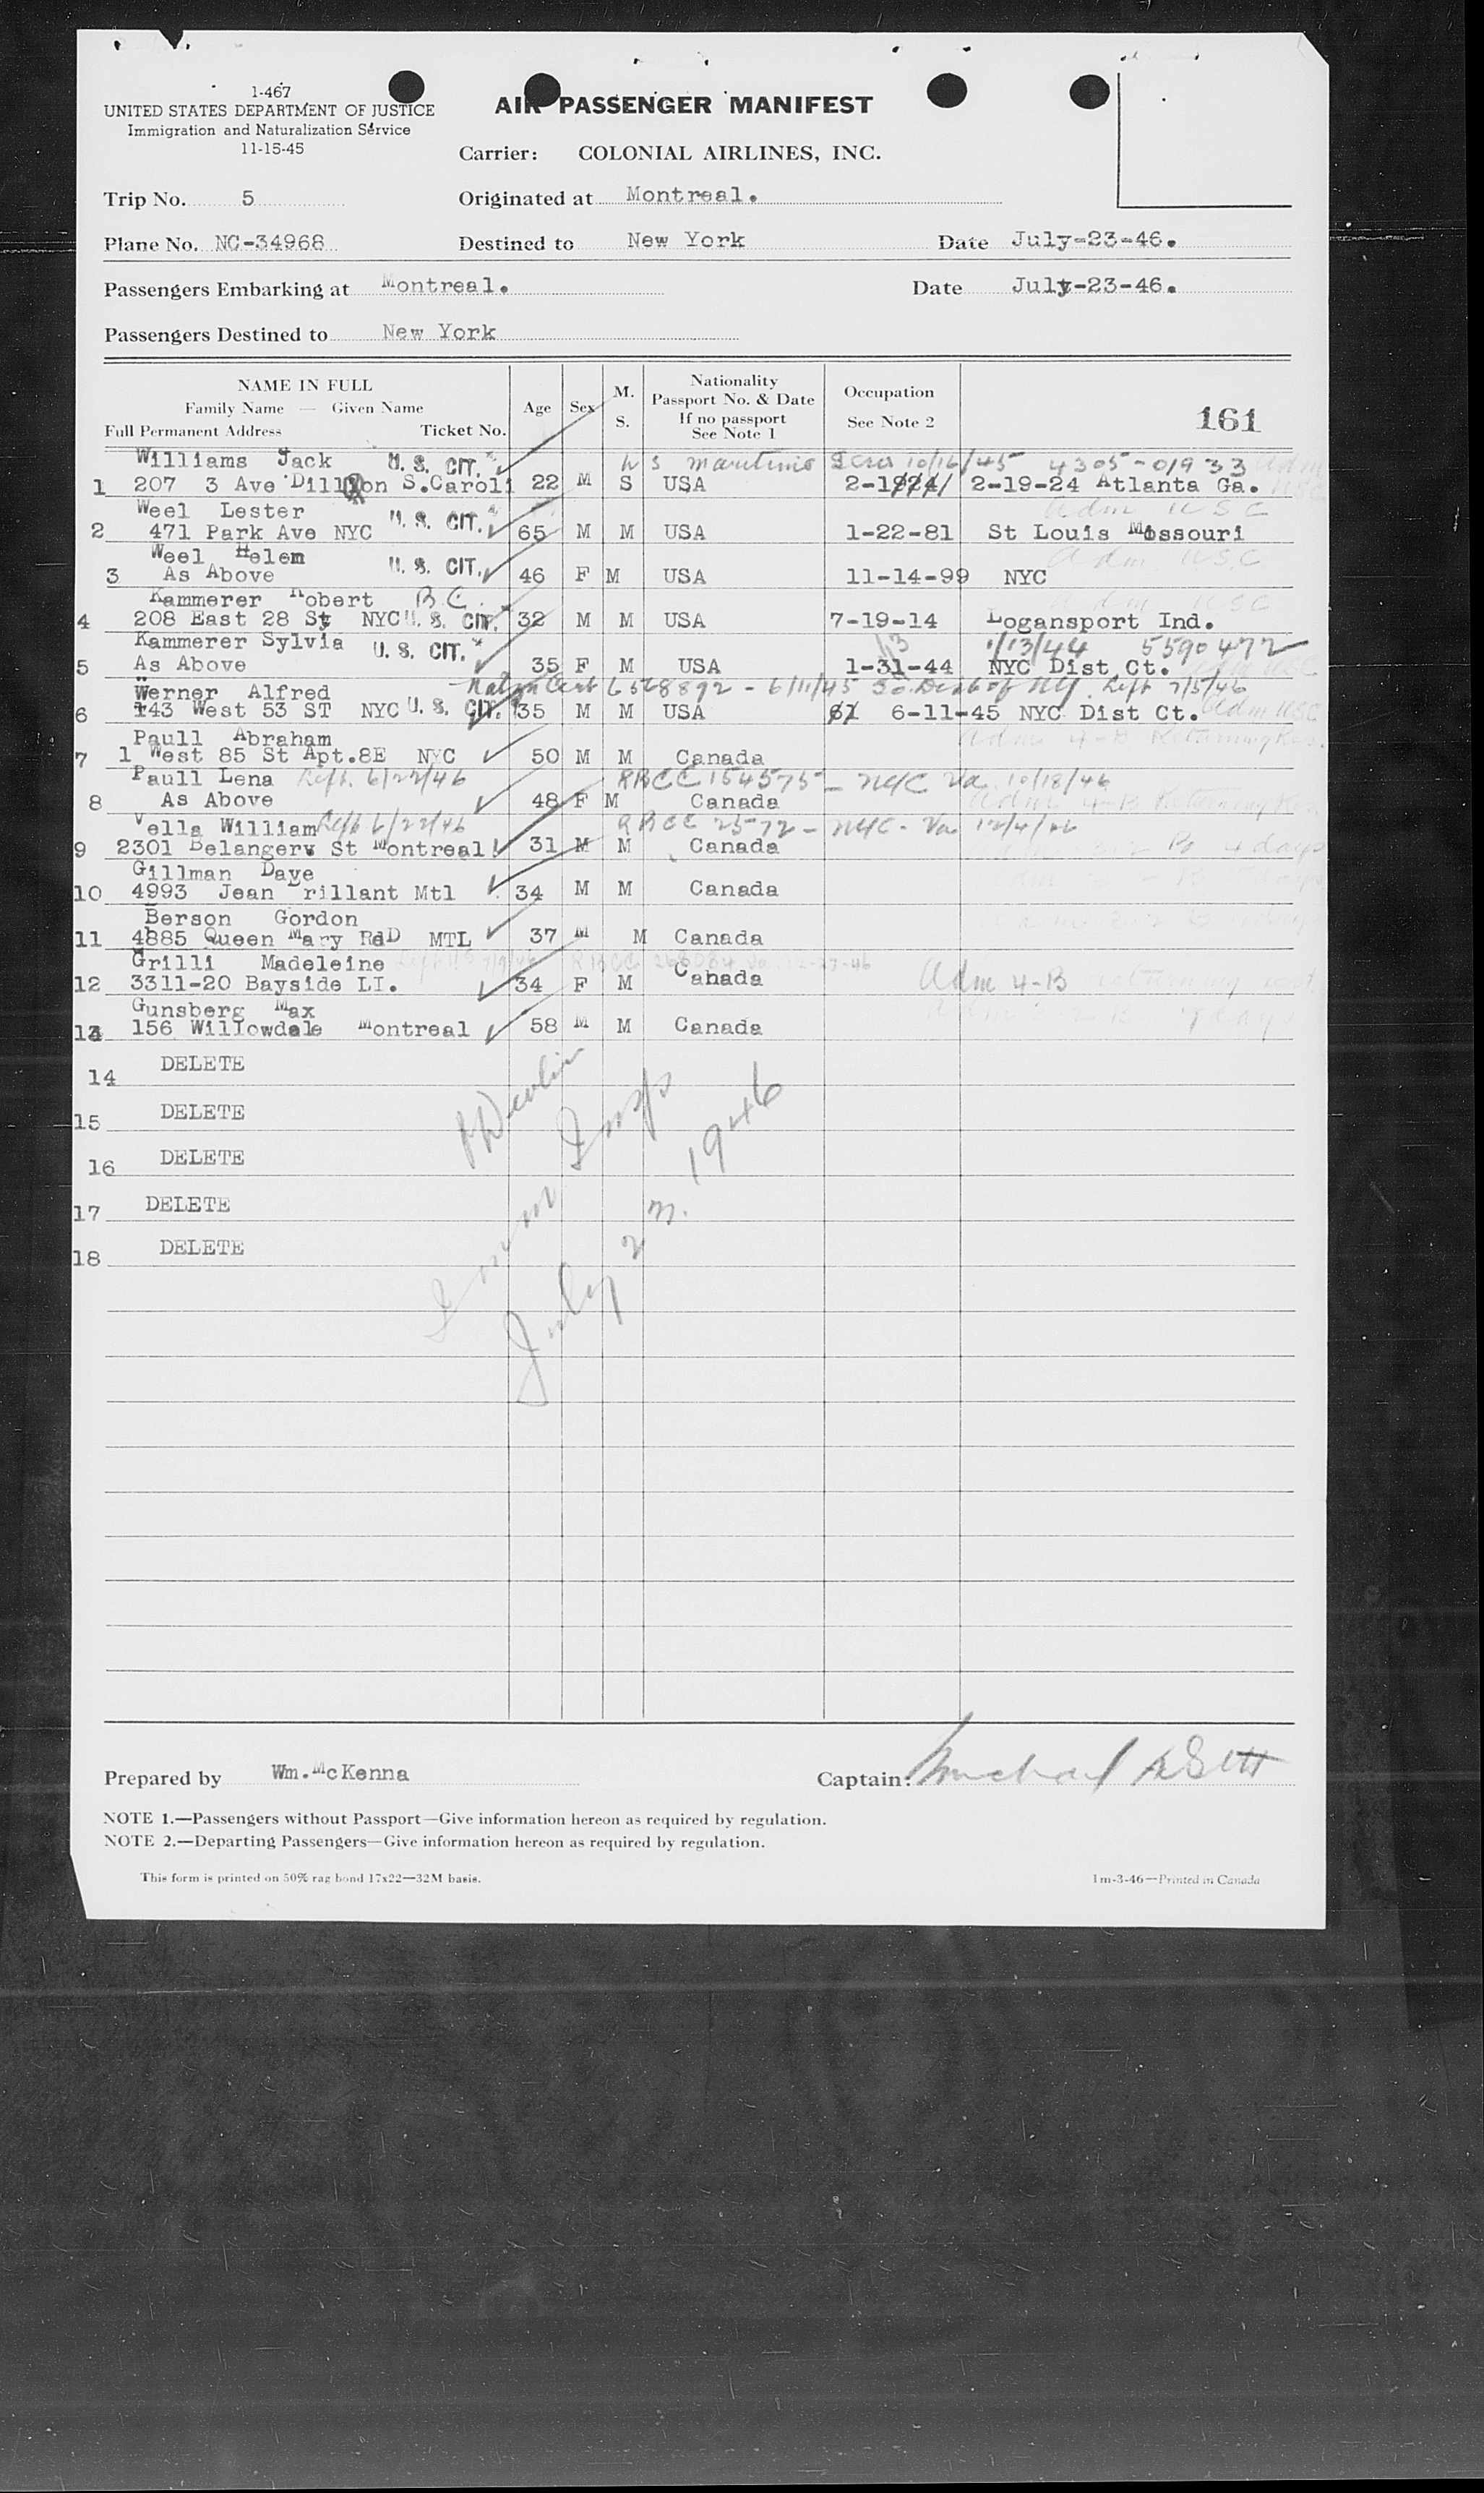 1-467
UNITED STATES DEPARTMENT OF JUSTICE
Immigration and Naturalization Service
11-15-45
AIR PASSENGER MANIFEST
Carrier: COLONIAL AIRLINES, INC.
Trip No. 5 Originated at Montreal.
Plane No. NC-34968 Destined to New York Date July-23-46.
Passengers Embarking at Montreal. Date July-23-46.
Passengers Destined to New York
NAME IN FULL
Family Name — Given Name
Full Permanent Address Ticket No.
Age Sex M. S.
Nationality
Passport No. & Date
If no passport
See Note 1
Occupation
See Note 2
161
Williams Jack U. S. CIT. 10/16/45 4305-01933 adm
1 207 3 Ave Dillon S.Caroli 22 M S USA 2-1924/ 2-19-24 Atlanta Ga. USC
Weel Lester U. S. CIT. adm USC
2 471 Park Ave NYC 65 M M USA 1-22-81 St Louis Missouri
Weel Helem U. S. CIT. adm USC
3 As Above 46 F M USA 11-14-99 NYC
Kammerer Robert B.C. adm USC
4 208 East 28 St NYC U. S. CIT. 32 M M USA 7-19-14 Logansport Ind.
Kammerer Sylvia U. S. CIT. 1/13/44 5590472
5 As Above 35 F M USA 1-31-44 NYC Dist Ct.
13
Natzn Cert 6568892 - 6/11/45 So. Dist of NY. Left 7/5/46
Werner Alfred
6 143 West 53 ST NYC U. S. CIT. 35 M M USA 6-11-45 NYC Dist Ct. adm USC
Paull Abraham adm 4-B Returning Res.
7 1 West 85 St Apt.8E NYC 50 M M Canada
Paull Lena Left. 6/22/46 RBCC 154575 - NYC Va. 10/18/46
8 As Above 48 F M Canada adm 4-B Returning Res.
Vella William Left 6/22/46 RBCC 2572 - NYC - Va 12/4/46
9 2301 Belangerv St Montreal 31 M M Canada 3.2 B 4 days
Gillman Dave
10 4993 Jean Brillant Mtl 34 M M Canada
Berson Gordon
11 4885 Queen Mary RdD MTL 37 M M Canada
Grilli Madeleine
12 3311-20 Bayside LI. 34 F M Cahada Adm 4-B returning
Gunsberg Max
13 156 Willowdale Montreal 58 M M Canada
14 DELETE
15 DELETE
16 DELETE
17 DELETE
18 DELETE
Devlin
Imm Insp
July 23. 1946
Prepared by Wm.McKenna Captain: Michael
NOTE 1.—Passengers without Passport—Give information hereon as required by regulation.
NOTE 2.—Departing Passengers—Give information hereon as required by regulation.
This form is printed on 50% rag bond 17x22—32M basis. 1m-3-46—Printed in Canada